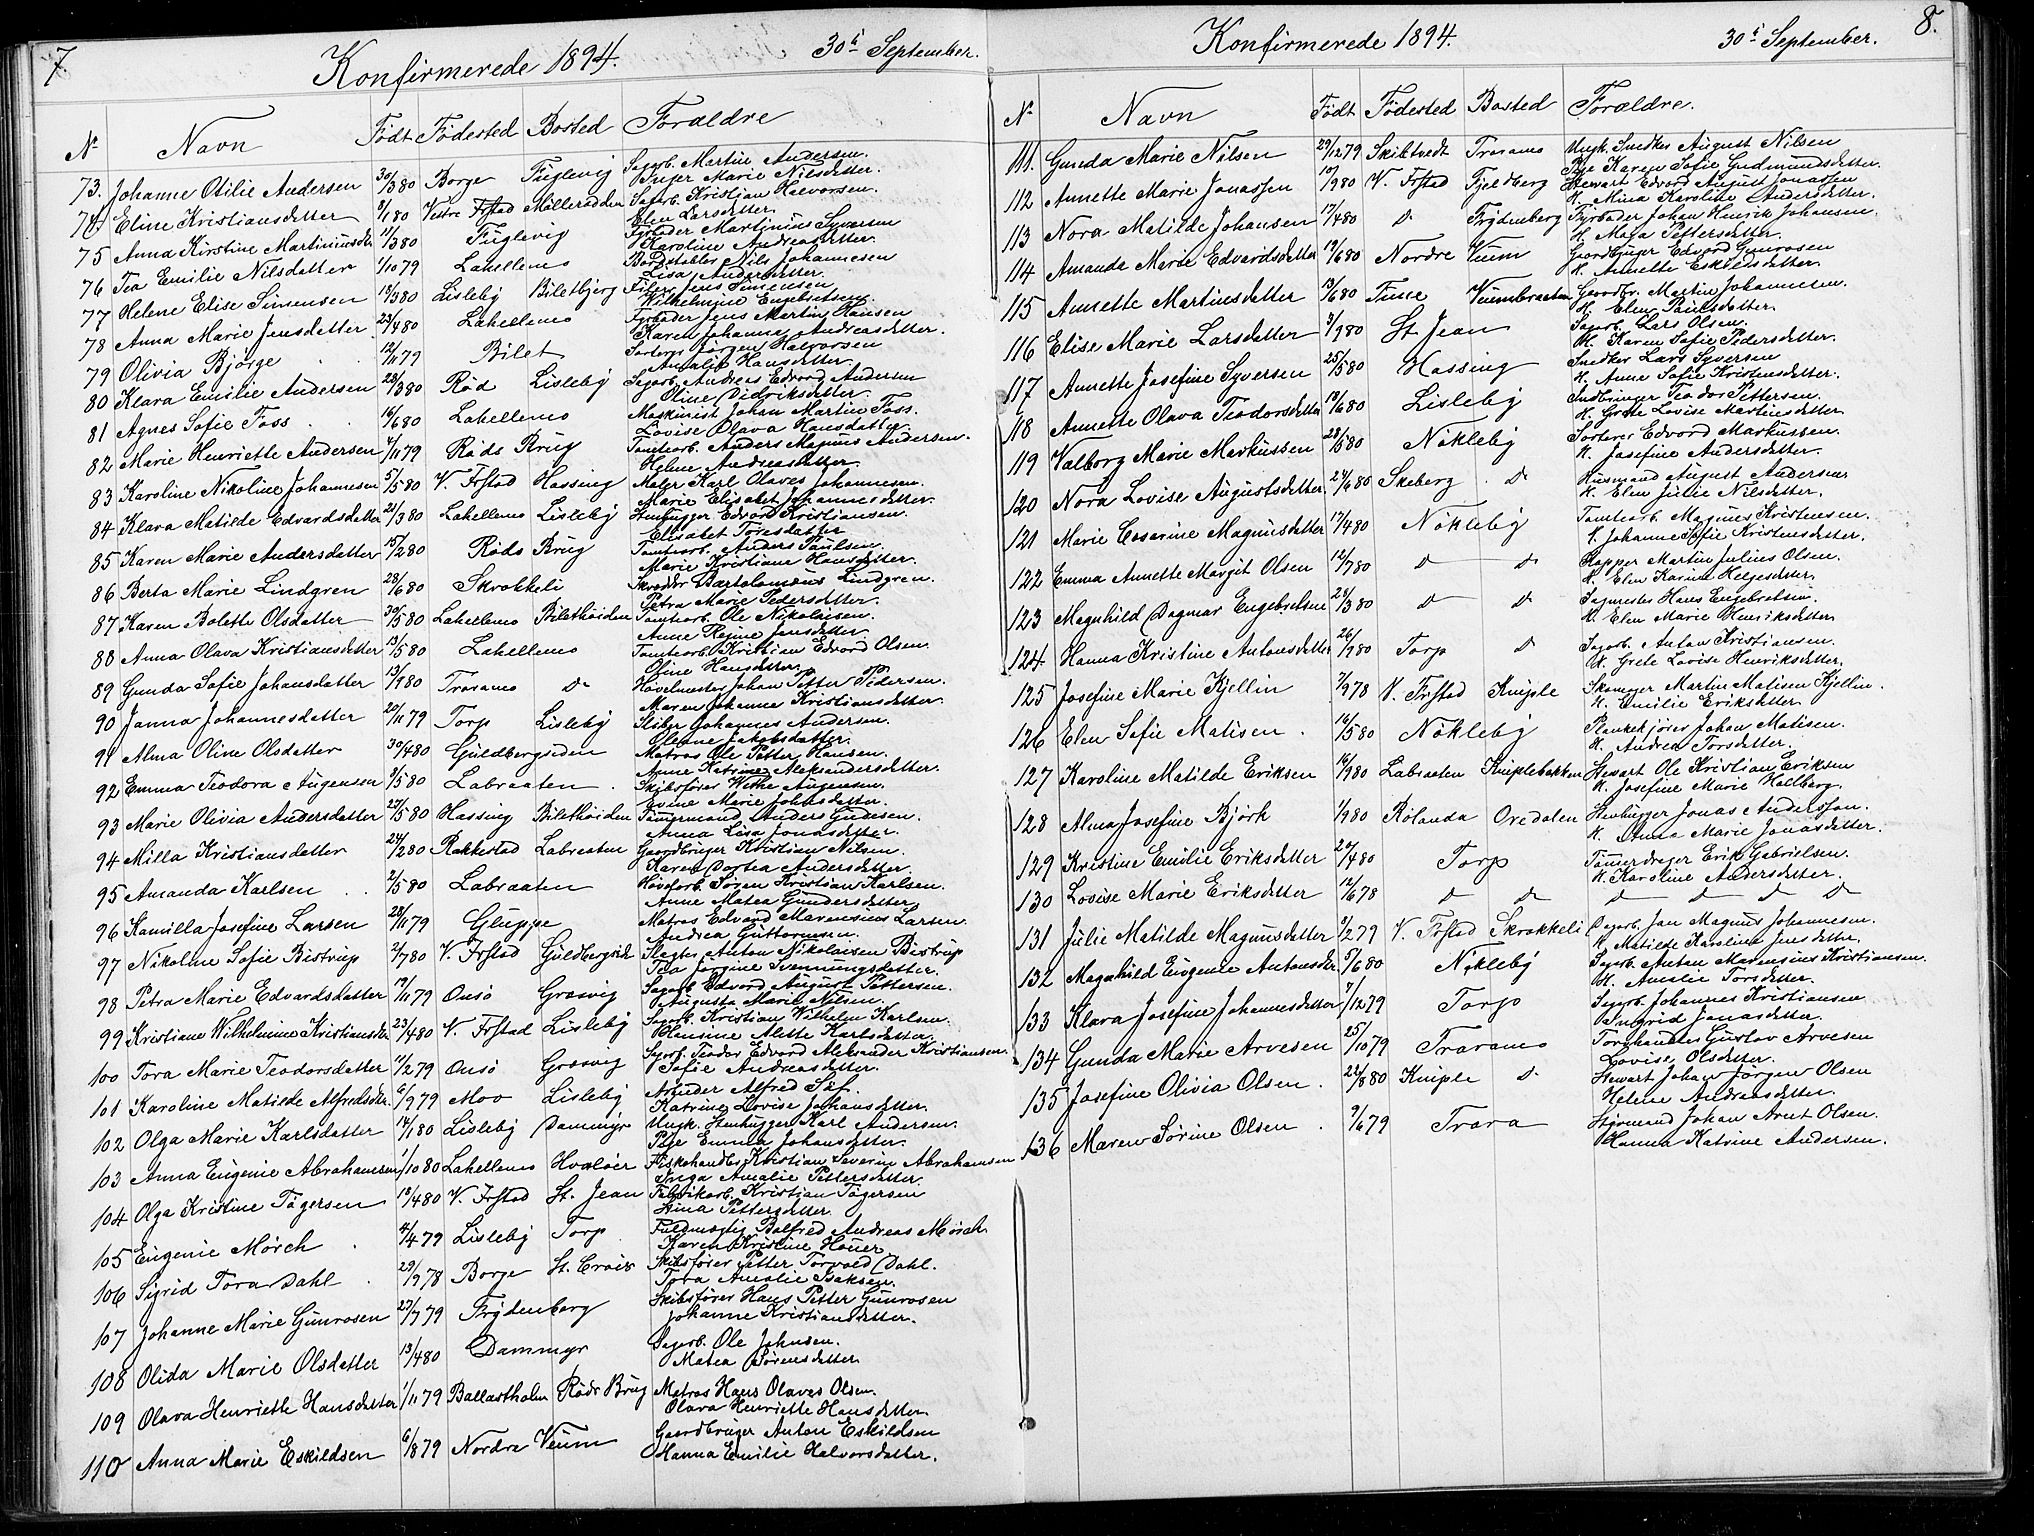 7 Konfirmerede 1894. 30te September.
No Navn Födt Födested Bosted Forældre
73. Johanne Otilie Andersen 30/3 80 Borge Fuglevig Sagarb. Martin Andersen.
Inger Marie Nilsdatter.
74 Eline Kristiansdatter 8/1 80 Vestre Frstad Mölleródden Sagarb. Kristian Halvorsen.
Elen Larsdatter.
75 Anna Kirstine Martiniusdr 11/3 80 Fuglevig Fyrbøder Martinius Syversen
Karoline Andreasdatter.
76 Tea Emilie Nilsdatter 1/10 79 Lahellemo Bordstabler Nils Johannesen
Lisa Andersdatter.
77 Helene Elise Simensen 18/3 80 Lisleby Biletbjerg Filer Jens Simensen
Wilhelmine Engebretsen.
78 Anna Marie Jensdatter 23/4 80 Lahellemo Fyrbøder Jens Martin Hansen
Karen Johanne Andreasdatter.
79 Olivia Bjørge 12/11 79 Bilet Sorterer Jörgen Halvorsen
Amalie Hansdatter.
80 Klara Emilie Andersen 28/3 80 Röd Lisleby Sagarb. Andreas Edvard Andersen
Oline Didriksdatter.
81 Agnes Sofie Foss 16/6 80 Lahellemo Maskinist Johan Martin Foss.
Lovise Olava Hansdatter.
82 Marie Henriette Andersen 7/11 79 Röds Brug Tomtearb. Anders Magnus Andersen.
Helene Andreasdatter.
83 Karoline Nikoline Johannesen 5/5 80 V. Frstad Hassing Maler Karl Olaves Johannesen.
Marie Elisabet Johannesdatter.
84 Klara Matilde Edvardsdatter 21/3 80 Lahellemo Lisleby Stenhugger Edvard Kristiansen.
Elisabet Toresdatter
85 Karen Marie Andersdatter 15/2 80 Röds Brug Tomtearb. Anders Paulsen.
Marie Kristiane Hansdatter.
86 Berta Marie Lindgren 28/6 80 Skrokkeli Skrædder Bartolomæus Lindgren.
Petra Marie Pedersdatter.
87 Karen Bolette Olsdatter 30/5 80 Lahellemo Bilethöiden Tomtearb. Ole Nikolaisen.
Anne Regine Jensdatter
88 Anna Olava Kristiansdatter 13/5 80 Lahellemo Tomtearb. Kristian Edvard Olsen.
Oline Hansdatter.
89 Gunda Sofie Johansdatter 13/1 80 Traramo Do Hövelmester Johan Petter Pedersen.
Maren Johanne Kristiansdatter.
90 Janna Johannesdatter 20/11 79 Torp Lisleby Sliber Johannes Andersen.
Oleane Jakobsdatter.
91 Alma Oline Olsdatter 30/4 80 Guldbergsiden Matros Ole Petter Hansen.
Anne Katrine Aleksandersdatter.
92 Emma Teodora Augensen 9/5 80 Labraaten Skibsfører Wilhe Augensen.
Evine Marie Johnsdatter.
93 Marie Olivia Andersdatter 25/5 80 Hassing Bilethöiden Tömmermand Anders Gudesen.
Anna Lisa Jonasdatter.
94 Milla Kristiansdatter 24/2 80 Rakkestad Labraaten Gaardbruger Kristian Nilsen.
Karen Dortea Andersdatter.
95 Amanda Karlsen 2/5 80 Labraaten Hövlearb. Sören Kristian Karlsen.
Anne Matea Gundersdatter.
96 Kamilla Josefine Larsen 28/11 79 Gluppe Matros Edvard Marensius Larsen
Andrea Guttormsen.
97 Nikoline Sofie Bistrup 2/7 80 V. Frstad Guldbergsid. Slagter Anton Nikolaisen Bistrup
Tea Jörgine Svenningsdatter.
98 Petra Marie Edvardsdatter 19/11 79 Onsö Gresvig Sagarb. Edvard August Pettersen.
Augusta Marie Nilsen.
99 Kristiane Wilhelmine Kristiansdr 23/4 80 V. Frstad Lisleby Sagarb. Kristian Vilhelm Karlsen.
Hansine Alette Karlsdatter.
100 Tora Marie Teodorsdatter 11/2 79 Onsö Gresvig Sagarb. Teodor Edvard Aleksander Kristiansen.
Sofie Andreasdatter.
101 Karoline Matilde Alfredsdtr. 6/9 79 Moss Lisleby Arbeider Alfred Säf.
Katrine Lovise Johansdatter.
102 Olga Marie Karlsdatter 14/1 80 Lisleby Dammyr Ungk. Stenhugger Karl Andersen.
Pige Emma Johansdatter.
103 Anna Eugenie Abrahamsen 1/10 80 Lahellemo Hvaløer Fiskehandler Kristian Severin Abrahamsen
Inga Amalie Pettersdatter.
104 Olga Kristine Tögersen 18/4 80 V. Frstad St. Jean Fabrikarb. Kristian Tögersen
Stina Pettersdatter.
105 Eugenie Mørch 4/4 79 Lisleby Torp Fuldmægtig Balfred Andreas Mørch.
Karen Kristine Houer.
106 Sigrid Tora Dahl 29/9 78 Borge St. Croix Skibsfører Petter Torvald Dahl.
Tora Amalie Isaksen.
107 Johanne Marie Gunrosen 27/7 79 Frydenberg Skibsfører Hans Petter Gunrosen
Johanne Kristiansdatter.
108 Olida Marie Olsdatter 13/4 80 Dammyr Sagarb. Ole Johnsen.
Matea Sörensdatter
109 Olava Henriette Hansdatter 1/11 79 Ballastholm Röds Brug Matros Hans Olaves Olsen.
Olava Henriette Hansdatter.
110 Anna Marie Eskildsen 6/8 79 Nordre Veum Gaardbruger Anton Eskildsen
Hanna Emilie Halvorsdatter.
Konfirmerede 1894. 30te September. 8.
No Navn Födt Födested Bosted Forældre.
111. Gunda Marie Nilsen 29/12 79 Skibtvedt Traramo Ungk. Snedker August Nilsen
Pige Karen Sofie Gudmundsdatter.
112 Annette Marie Jonassen 10/9 80 V. Frstad Fjeldberg Stewart Edvard August Jonassen
H. Mina Karoline Andersdatter.
113 Nora Matilde Johansen 17/4 80 Do Frydenberg Fyrbøder Johan Henrik Johansen.
H. Maja Pettersdatter.
114 Amanda Marie Edvardsdatter 19/6 80 Nordre Veum Gaardbruger Edvard Gunrosen
H. Annette Eskildsdatter.
115 Annette Martinsdatter 13/6 80 Tune Veumbraaten Gaardbr. Martin Johannesen.
H. Elen Paulsdatter.
116 Elise Marie Larsdatter 3/9 80 St Jean Sagarb. Lars Olsen.
H. Karen Sofie Pedersdatter.
117 Annette Josefine Syversen 25/5 80 Hassing Snedker Lars Syversen
H. Anne Sofie Kristensdatter.
118 Annette Olava Teodorsdatter 13/6 80 Lisleby Indbringer Teodor Pettersen.
H. Grete Lovise Martinsdatter.
119 Valborg Marie Markussen 28/5 80 Nökleby Sorterer Edvard Markussen.
H. Josefine Andersdatter.
120 Nora Lovise Augustsdatter 24/6 80 Skeberg Do Husmand August Andersen
H. Elen Julie Nilsdatter.
121 Marie Cesarine Magnusdatter 17/4 80 Nökleby Tomtearb. Magnus Kristensen.
H. Johanne Sofie Kristensdatter.
122 Emma Annette Margit Olsen 12/7 80 Do Do Kapper Martin Julius Olsen.
H. Elen Karine Helgesdatter.
123 Magnhild Dagmar Engebretsen 29/3 80 Do Do Sagmester Hans Engebretsen.
H. Elen Marie Henriksdatter.
124. Hanna Kristine Antonsdatter 26/1 80 Torp Do Sagarb. Anton Kristiansen.
H. Grete Lovise Henriksdatter.
125 Josefine Marie Kjellin 7/9 78 V. Frstad Kniple Skomager Martin Matisen Kjellin.
H. Emilie Eriksdatter.
126 Elen Sofie Matisen 14/5 80 Nökleby Plankekjører Johan Matisen.
H. Andrea Torsdatter.
127 Karoline Matilde Eriksen 16/9 80 Labraaten Kniplebakken Stewart Ole Kristian Eriksen
H. Josefine Marie Hallberg.
128 Alma Josefine Björk 1/9 80 Rölanda Oredalen Stenhugger Jonas Andersson.
H. Anna Marie Jonasdatter.
129 Kristine Emilie Eriksdatter 20/4 80 Torp Tömmerdrager Erik Gabrielsen.
H. Karoline Andersdatter.
130 Lovise Marie Eriksdatter 12/6 78 Do Do Do Do Do Do
131 Julie Matilde Magnusdatter 3/2 79 V. Frstad Skrokkeli Sagarb. Jan Magnus Johannesen.
H. Matilde Karoline Jensdatter.
132 Magnhild Eugenie Antonsdtr. 5/6 80 Nökleby Sagarb. Anton Marensius Kristiansen.
H. Amalie Torsdatter.
133 Klara Josefine Johannesdatter 7/12 79 Torp Sagarb. Johannes Kristiansen
Ingrid Jonasdatter.
134 Gunda Marie Arvesen 25/10 79 Traramo Torvhandler Gustav Arvesen
Lovise Olsdatter.
135 Josefine Olivia Olsen 22/8 80 Kniple Do Stewart Johan Jörgen Olsen
Helene Andreasdatter.
136 Maren Sørine Olsen 9/6 79 Trara Styrmand Johan Arnt Olsen.
Hanna Katrine Andersen.